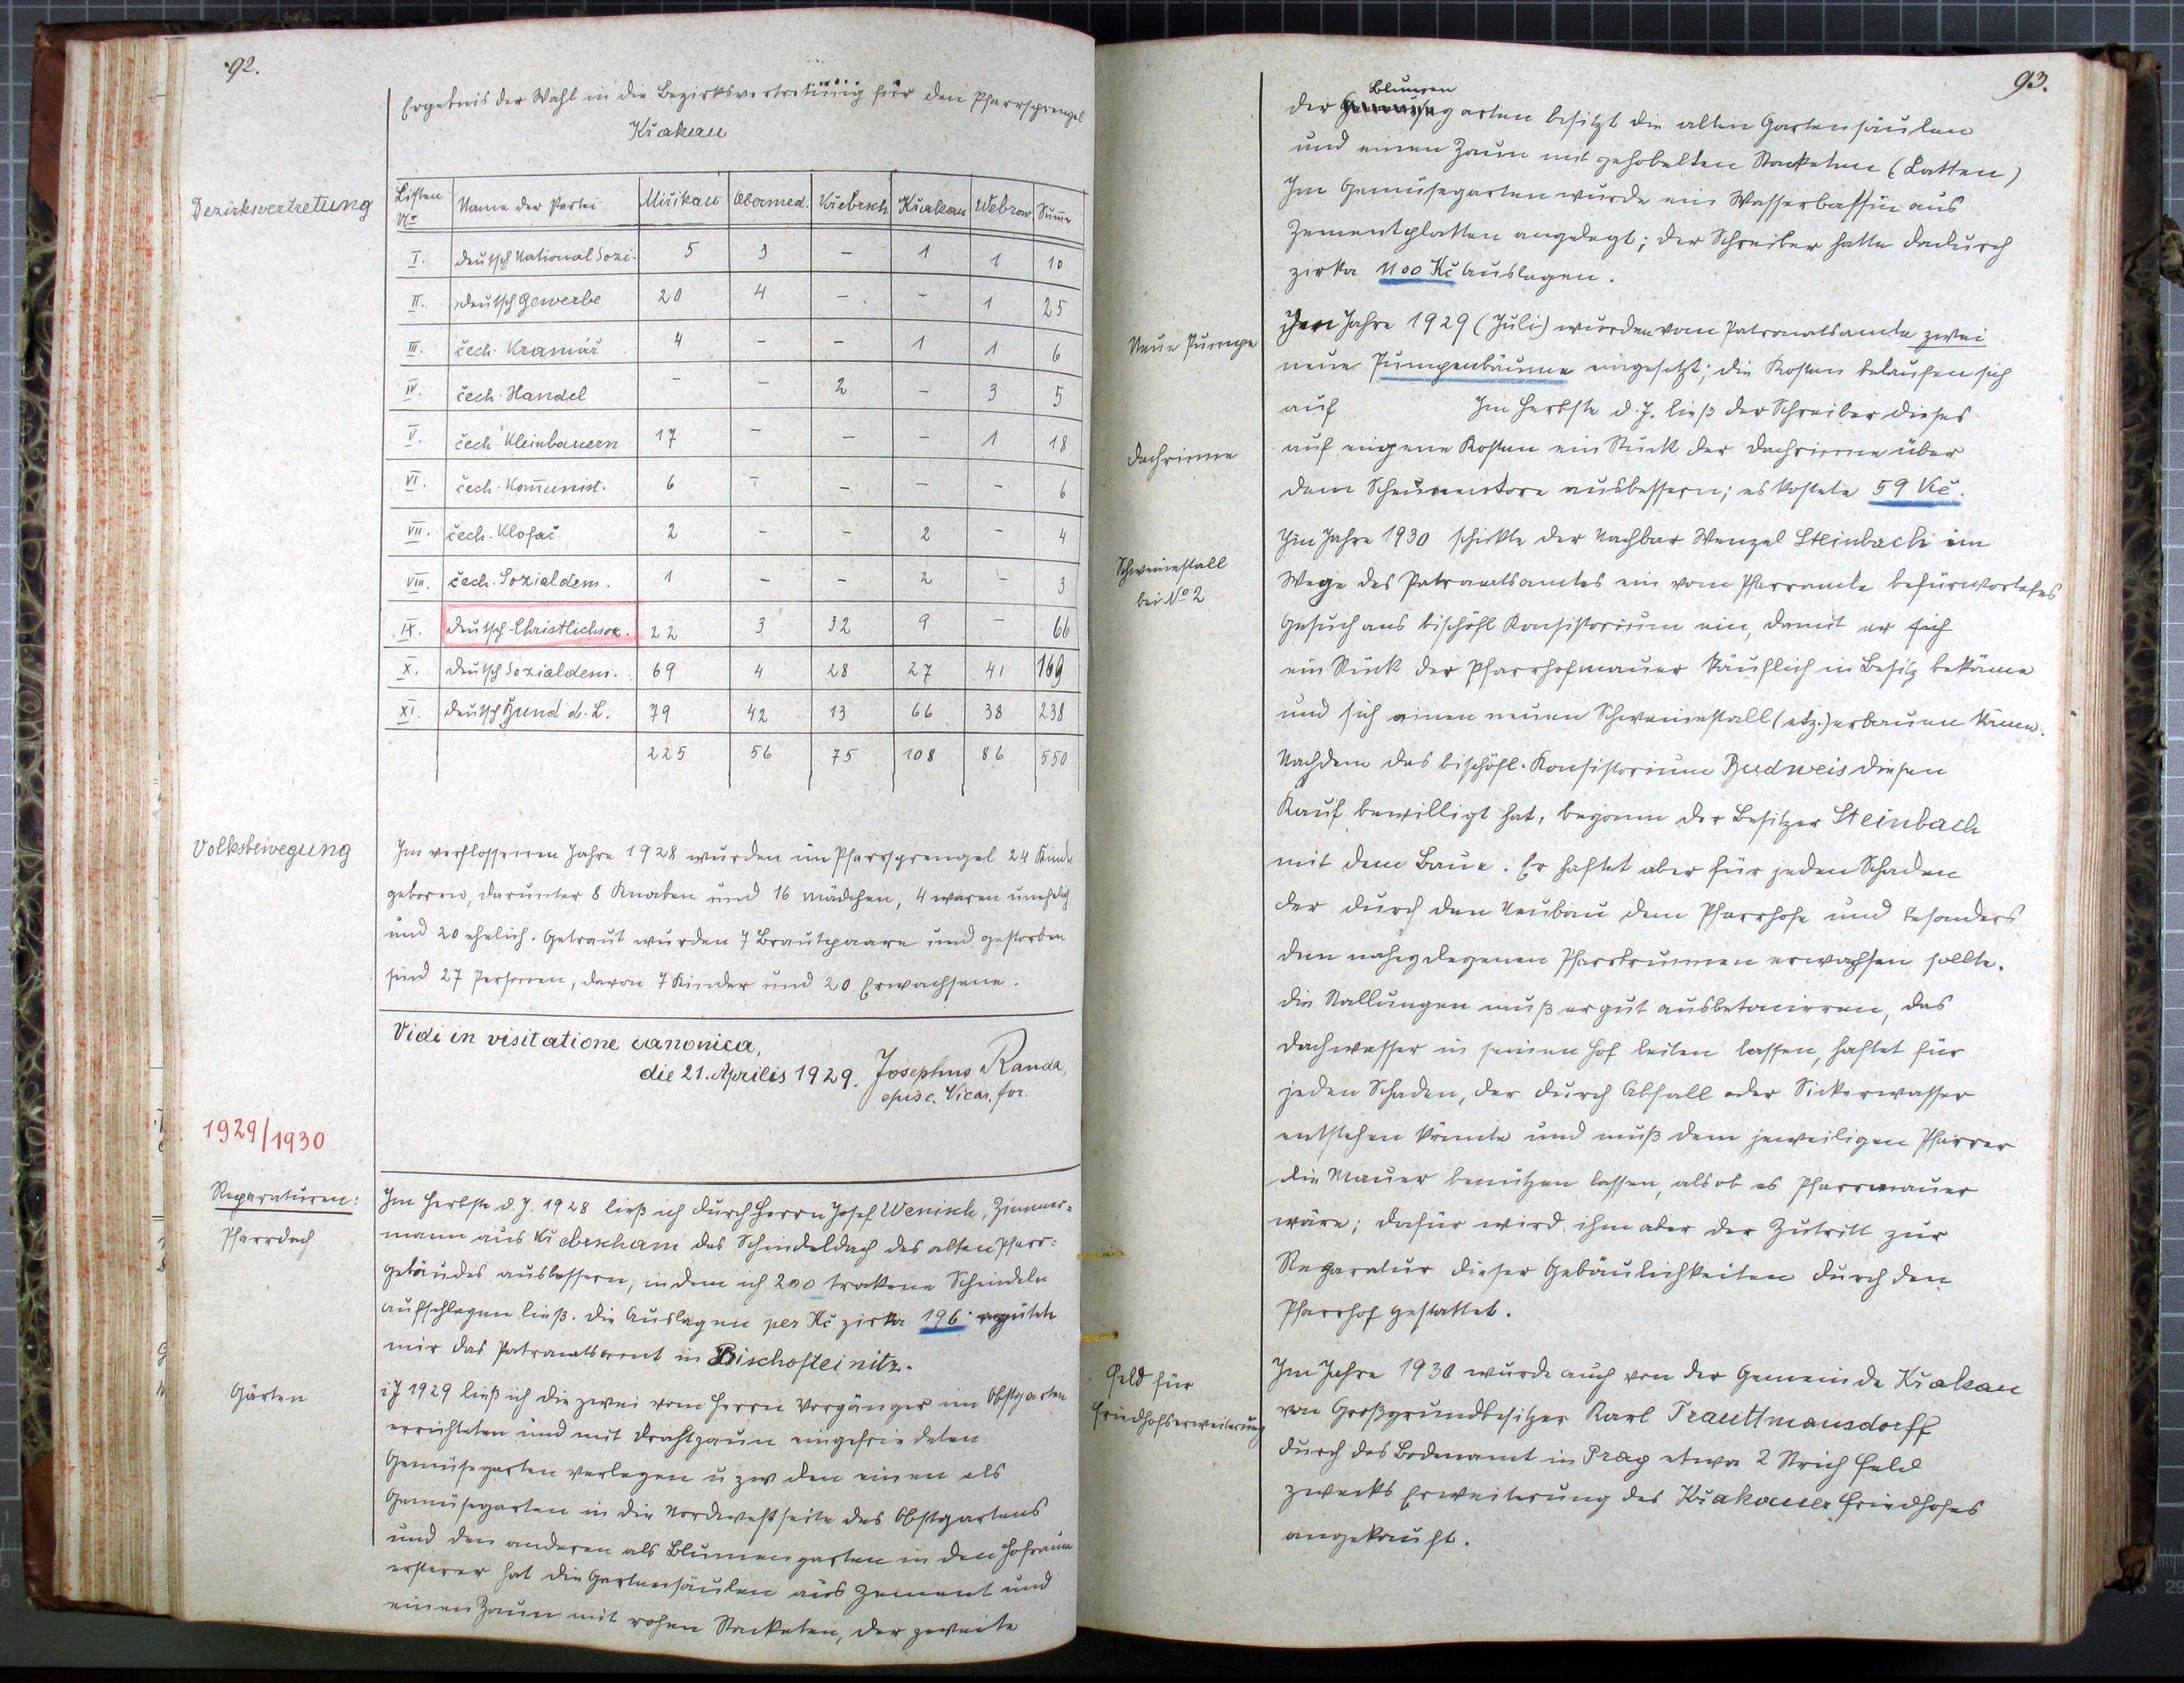 92.
Ergebnis der Wahl in die Bezirksvertretung für den Pfarrsprengel
Křakau
Bezirksvertretung
Listen No | Name der Partei | Miřikau | Obermed. | Křebrsch | Křakau | Webrow | Sum̄e
I. | deutsch National Sozi. | 5 | 3 | – | 1 | 1 | 10
II. | deutsch Gewerbe | 20 | 4 | – | – | 1 | 25
III. | čech. Kramář | 4 | – | – | 1 | 1 | 6
IV. | čech. Handel | – | – | 2 | – | 3 | 5
V. | čech. Kleinbauern | 17 | – | – | – | 1 | 18
VI. | čech. Kom̄unist. | 6 | – | – | – | – | 6
VII. | čech. Klofač | 2 | – | – | 2 | – | 4
VIII. | čech. Sozialdem. | 1 | – | – | 2 | – | 3
IX. | deutsch-Christlichsoz. | 22 | 3 | 32 | 9 | – | 66
X. | deutsch Sozialdem. | 69 | 4 | 28 | 27 | 41 | 169
XI. | deutsch Bund d. L. | 79 | 42 | 13 | 66 | 38 | 238
225 | 56 | 75 | 108 | 86 | 550
Volksbewegung
Im verflossenen Jahre 1928 wurden im Pfarrsprengel 24 Kinder
geboren, darunter 8 Knaben und 16 Mädchen, 4 waren unehelich
und 20 ehelich. Getraut wurden 7 Brautpaare und gestorben
sind 27 Personen, davon 7 Kinder und 20 Erwachsene.
Vidi in visitatione canonica,
die 21. Aprilis 1929. Josephus Randa,
episc. Vicar. for.
1929/1930
Reparaturen:
Pfarrdach
Im Herbste d. J. 1928 ließ ich durch Herrn Josef Wenisch, Zimmer-
mann aus Křebrscham das Schindeldach des alten Pfarr-
gebäudes ausbessern, indem ich 200 trockene Schindeln
aufschlagen ließ. Die Auslagen per Kč zirka 196·
mir das Patronatsamt in Bischofteinitz.
Gärten
i J 1929 ließ ich die zwei vom Herrn Vorgänger im Obstgarten
errichteten und mit Drahtzaun eingefriedeten
Gemüsegarten verlegen u zw den einen als
Gemüsegarten in die Nordwestseite des Obstgartens
und den anderen als Blumengarten in den Hofraum
ersterer hat die Gartensäulen aus Zement und
einen Zaun mit rohen Stacketen, der zweite
93.
Blumen
der garten besitzt die alten Gartensäulen
und einen Zaun mit gehobelten Stacketen (Latten)
Im Gemüsegarten wurde ein Wasserbassin aus
Zementplatten angelegt; der Schreiber hatte dadurch
zirka 1100 Kč Auslagen.
Neue Pumpe
Im Jahre 1929 (Juli) wurden vom Patronatsamte zwei
neue Pumpenbäume eingesetzt; die Kosten belaufen sich
auf Im Herbste d. J. ließ der Schreiber dieses
Dachrinne
auf eigene Kosten ein Stück der Dachrinne über
dem Scheunentore ausbessern; es kostete 59 Kč.
Schweinestall
bei No 2
Im Jahre 1930 schickte der Nachbar Wenzel Steinbach im
Wege des Patronatsamtes ein vom Pfarramte befürwortetes
Gesuch ans bischöfl Konsistorium ein, damit er sich
ein Stück der Pfarrhofmauer käuflich in Besitz bekäme
und sich einen neuen Schweinestall (etz.) erbauen könne.
Nachdem das bischöfl. Konsistorium Budweis diesen
Kauf bewilligt hat, begann der Besitzer Steinbach
mit dem Baue. Er haftet aber für jeden Schaden
der durch den Neubau dem Pfarrhofe und besonders
dem nahegelegenen Pfarrbrunnen erwachsen sollte.
Die Stallungen muß er gut ausbetonieren, das
Dachwasser in seinen Hof leiten lassen, haftet für
jeden Schaden, der durch Abfall oder Sickerwasser
entstehen könnte und muß dem jeweiligen Pfarrer
die Mauer benützen lassen, als ob es Pfarrmauer
wäre; dafür wird ihm aber der Zutritt zur
Reparatur dieser Gebäulichkeiten durch den
Pfarrhof gestattet.
Feld für
Friedhofserweiterung
Im Jahre 1930 wurde auch von der Gemeinde Křakau
von Großgrundbesitzer Karl Trauttmansdorff
durch das Bodenamt in Prag etwa 2 Strich Feld
zwecks Erweiterung des Křakauer Friedhofes
angekauft.